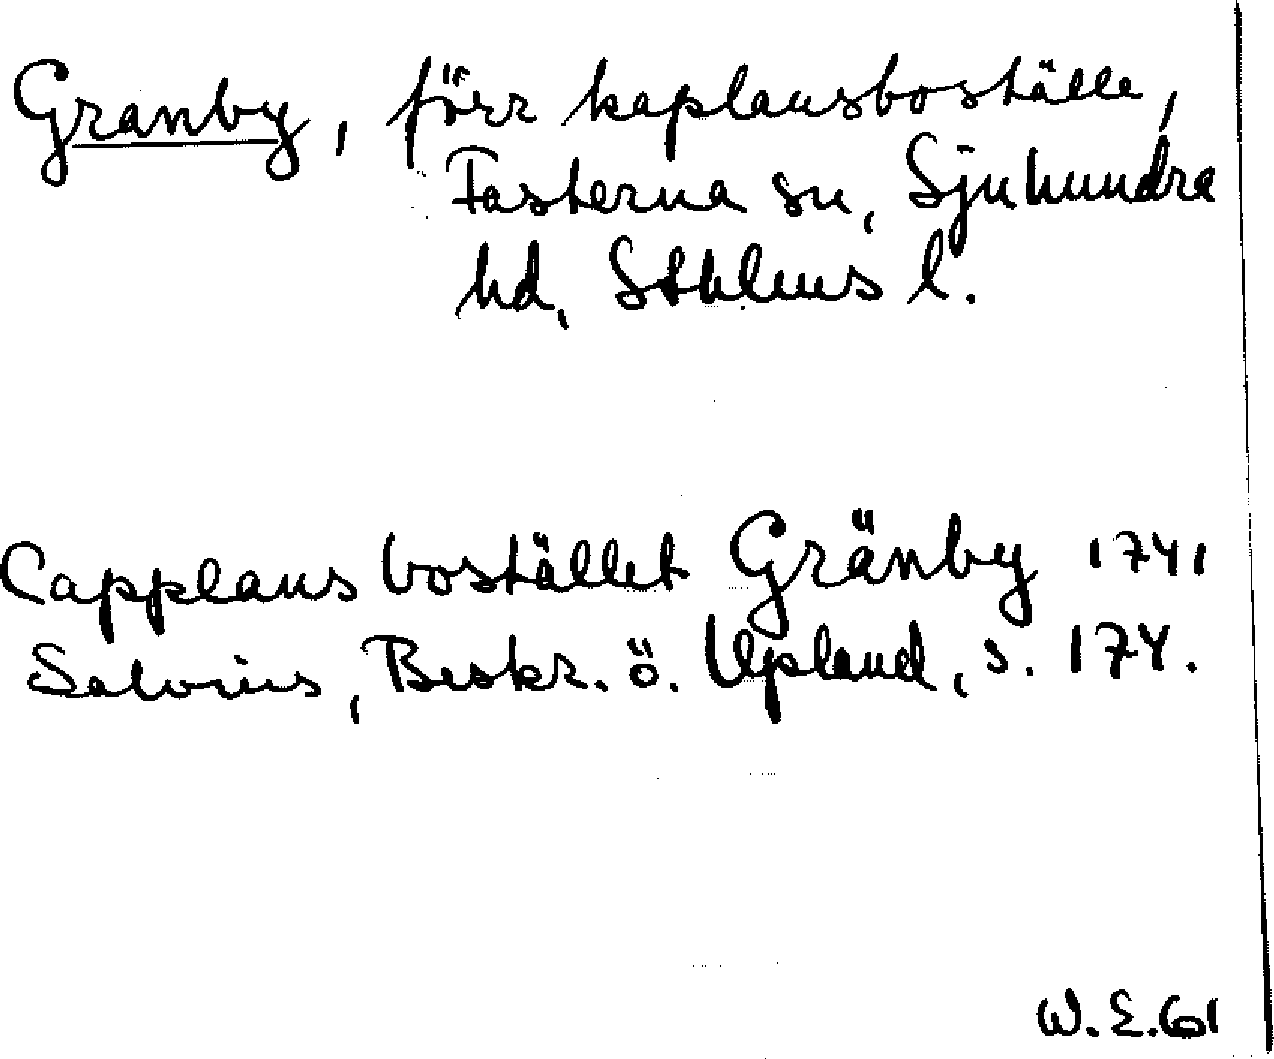 Granby, förr kaplansboställe,
Fasterna sn, Sjuhundra
hd, Sthlms l.
Capplans bostället Gränby 1741
Salvius, Beskr. ö. Upland, s. 174.
W. E. 61